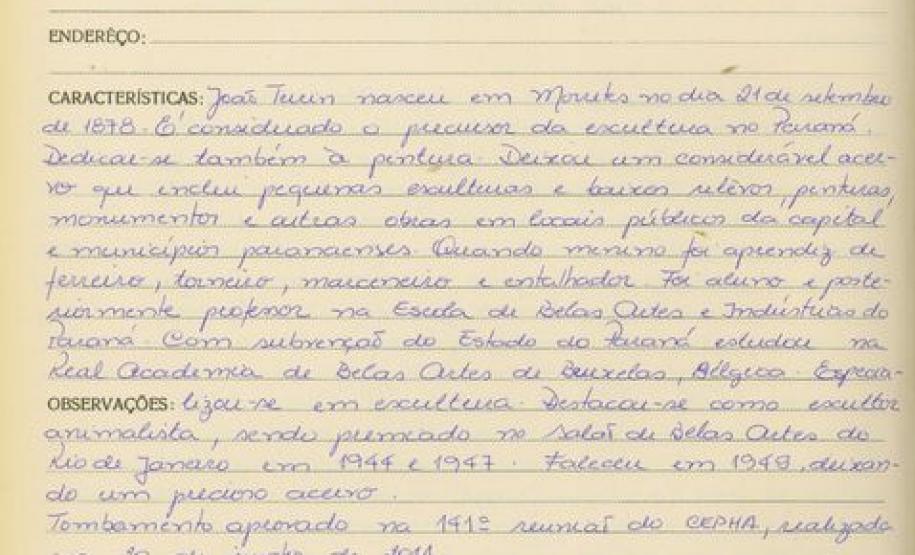 ENDERÊÇO:
CARACTERÍSTICAS: João Turin nasceu em Morretes no dia 21 de setembro
de 1878. É considerado o precursor da escultura no Paraná.
Dedicou-se também à pintura. Deixou um considerável acer-
vo que inclui pequenas esculturas e baixos relevos, pinturas,
monumentos e outras obras em locais públicos da capital
e municípios paranaenses. Quando menino foi aprendiz de
ferreiro, torneiro, marceneiro e entalhador. Foi aluno e poste-
riormente professor na Escola de Belas Artes e Indústrias do
Paraná. Com subvenção do Estado do Paraná estudou na
Real Academia de Belas Artes de Bruxelas, Bélgica. Especia-
OBSERVAÇÕES: lizou-se em escultura. Destacou-se como escultor
animalista, sendo premiado no Salão de Belas Artes do
Rio de Janeiro em 1944 e 1947. Faleceu em 1949, deixan-
do um precioso acervo.
Tombamento aprovado na 141ª reunião do CEPHA, realizada
de junho de